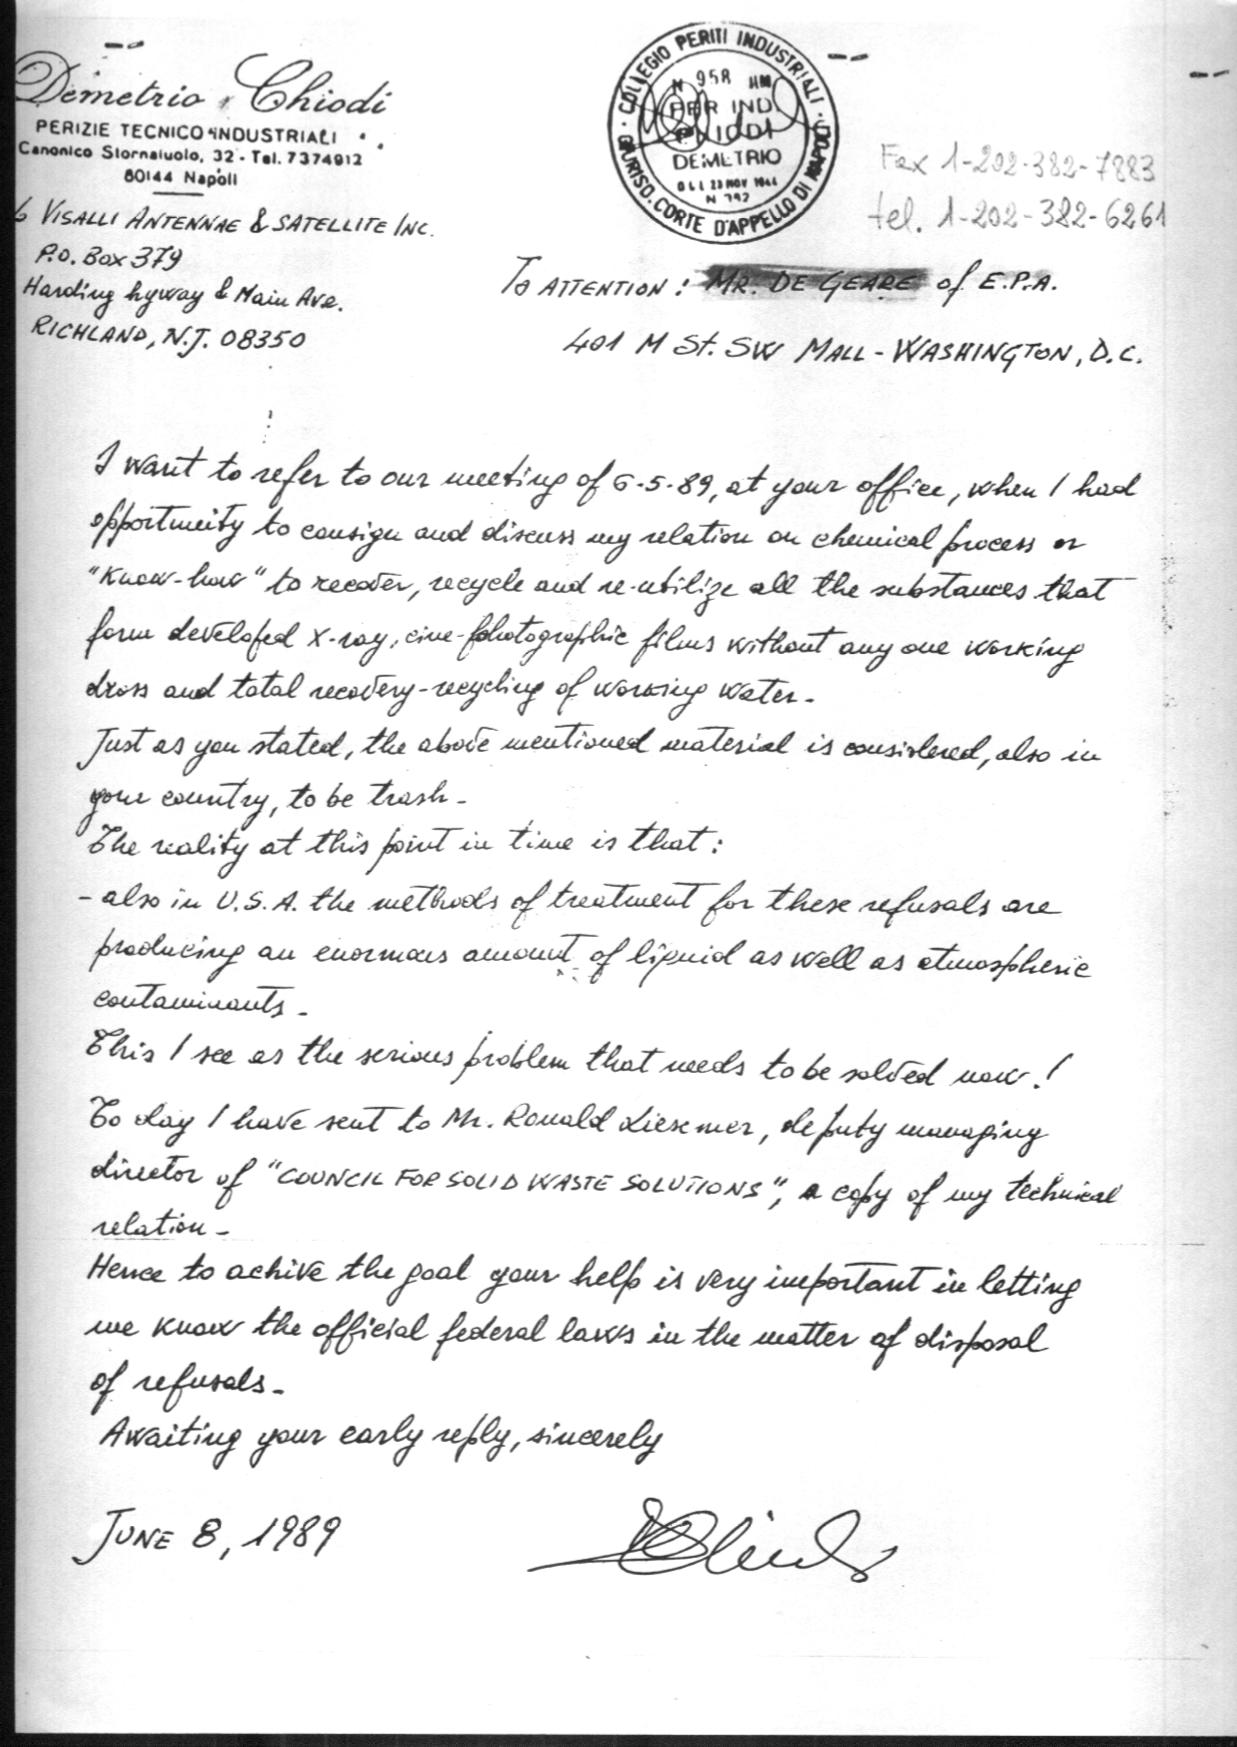 Demetrio Chiodi
PERIZIE TECNICO INDUSTRIALI
Canonico Stornaiuolo, 32 - Tel. 7374912
80144 Napoli
VISALLI ANTENNAE & SATELLITE INC.
P.O. Box 379
Harding hyway & Main Ave.
RICHLAND, N.J. 08350
COLLEGIO PERITI INDUSTRIALI
GIURISD. CORTE D'APPELLO DI NAPOLI
N 958
PER IND
CHIODI
DEMETRIO
23 NOV 1944
N 792
Fax 1-202-382-7883
tel. 1-202-382-6261
To ATTENTION: MR. DE GEARE of E.P.A.
401 M St. SW MALL - WASHINGTON, D.C.
I want to refer to our meeting of 6-5-89, at your office, when I had
opportunity to consign and discuss my relation on chemical process or
"know-how" to recover, recycle and re-utilize all the substances that
form developed x-ray, cine-photographic films without any one working
dross and total recovery-recycling of working water -
Just as you stated, the above mentioned material is considered, also in
your country, to be trash -
The reality at this point in time is that:
- also in U.S.A. the methods of treatment for these refusals are
producing an enormous amount of liquid as well as atmospheric
contaminants -
This I see as the serious problem that needs to be solved now!
To day I have sent to Mr. Ronald Liesemer, deputy managing
director of "COUNCIL FOR SOLID WASTE SOLUTIONS", a copy of my technical
relation -
Hence to achive the goal your help is very important in letting
me know the official federal laws in the matter of disposal
of refusals -
Awaiting your early reply, sincerely
JUNE 8, 1989